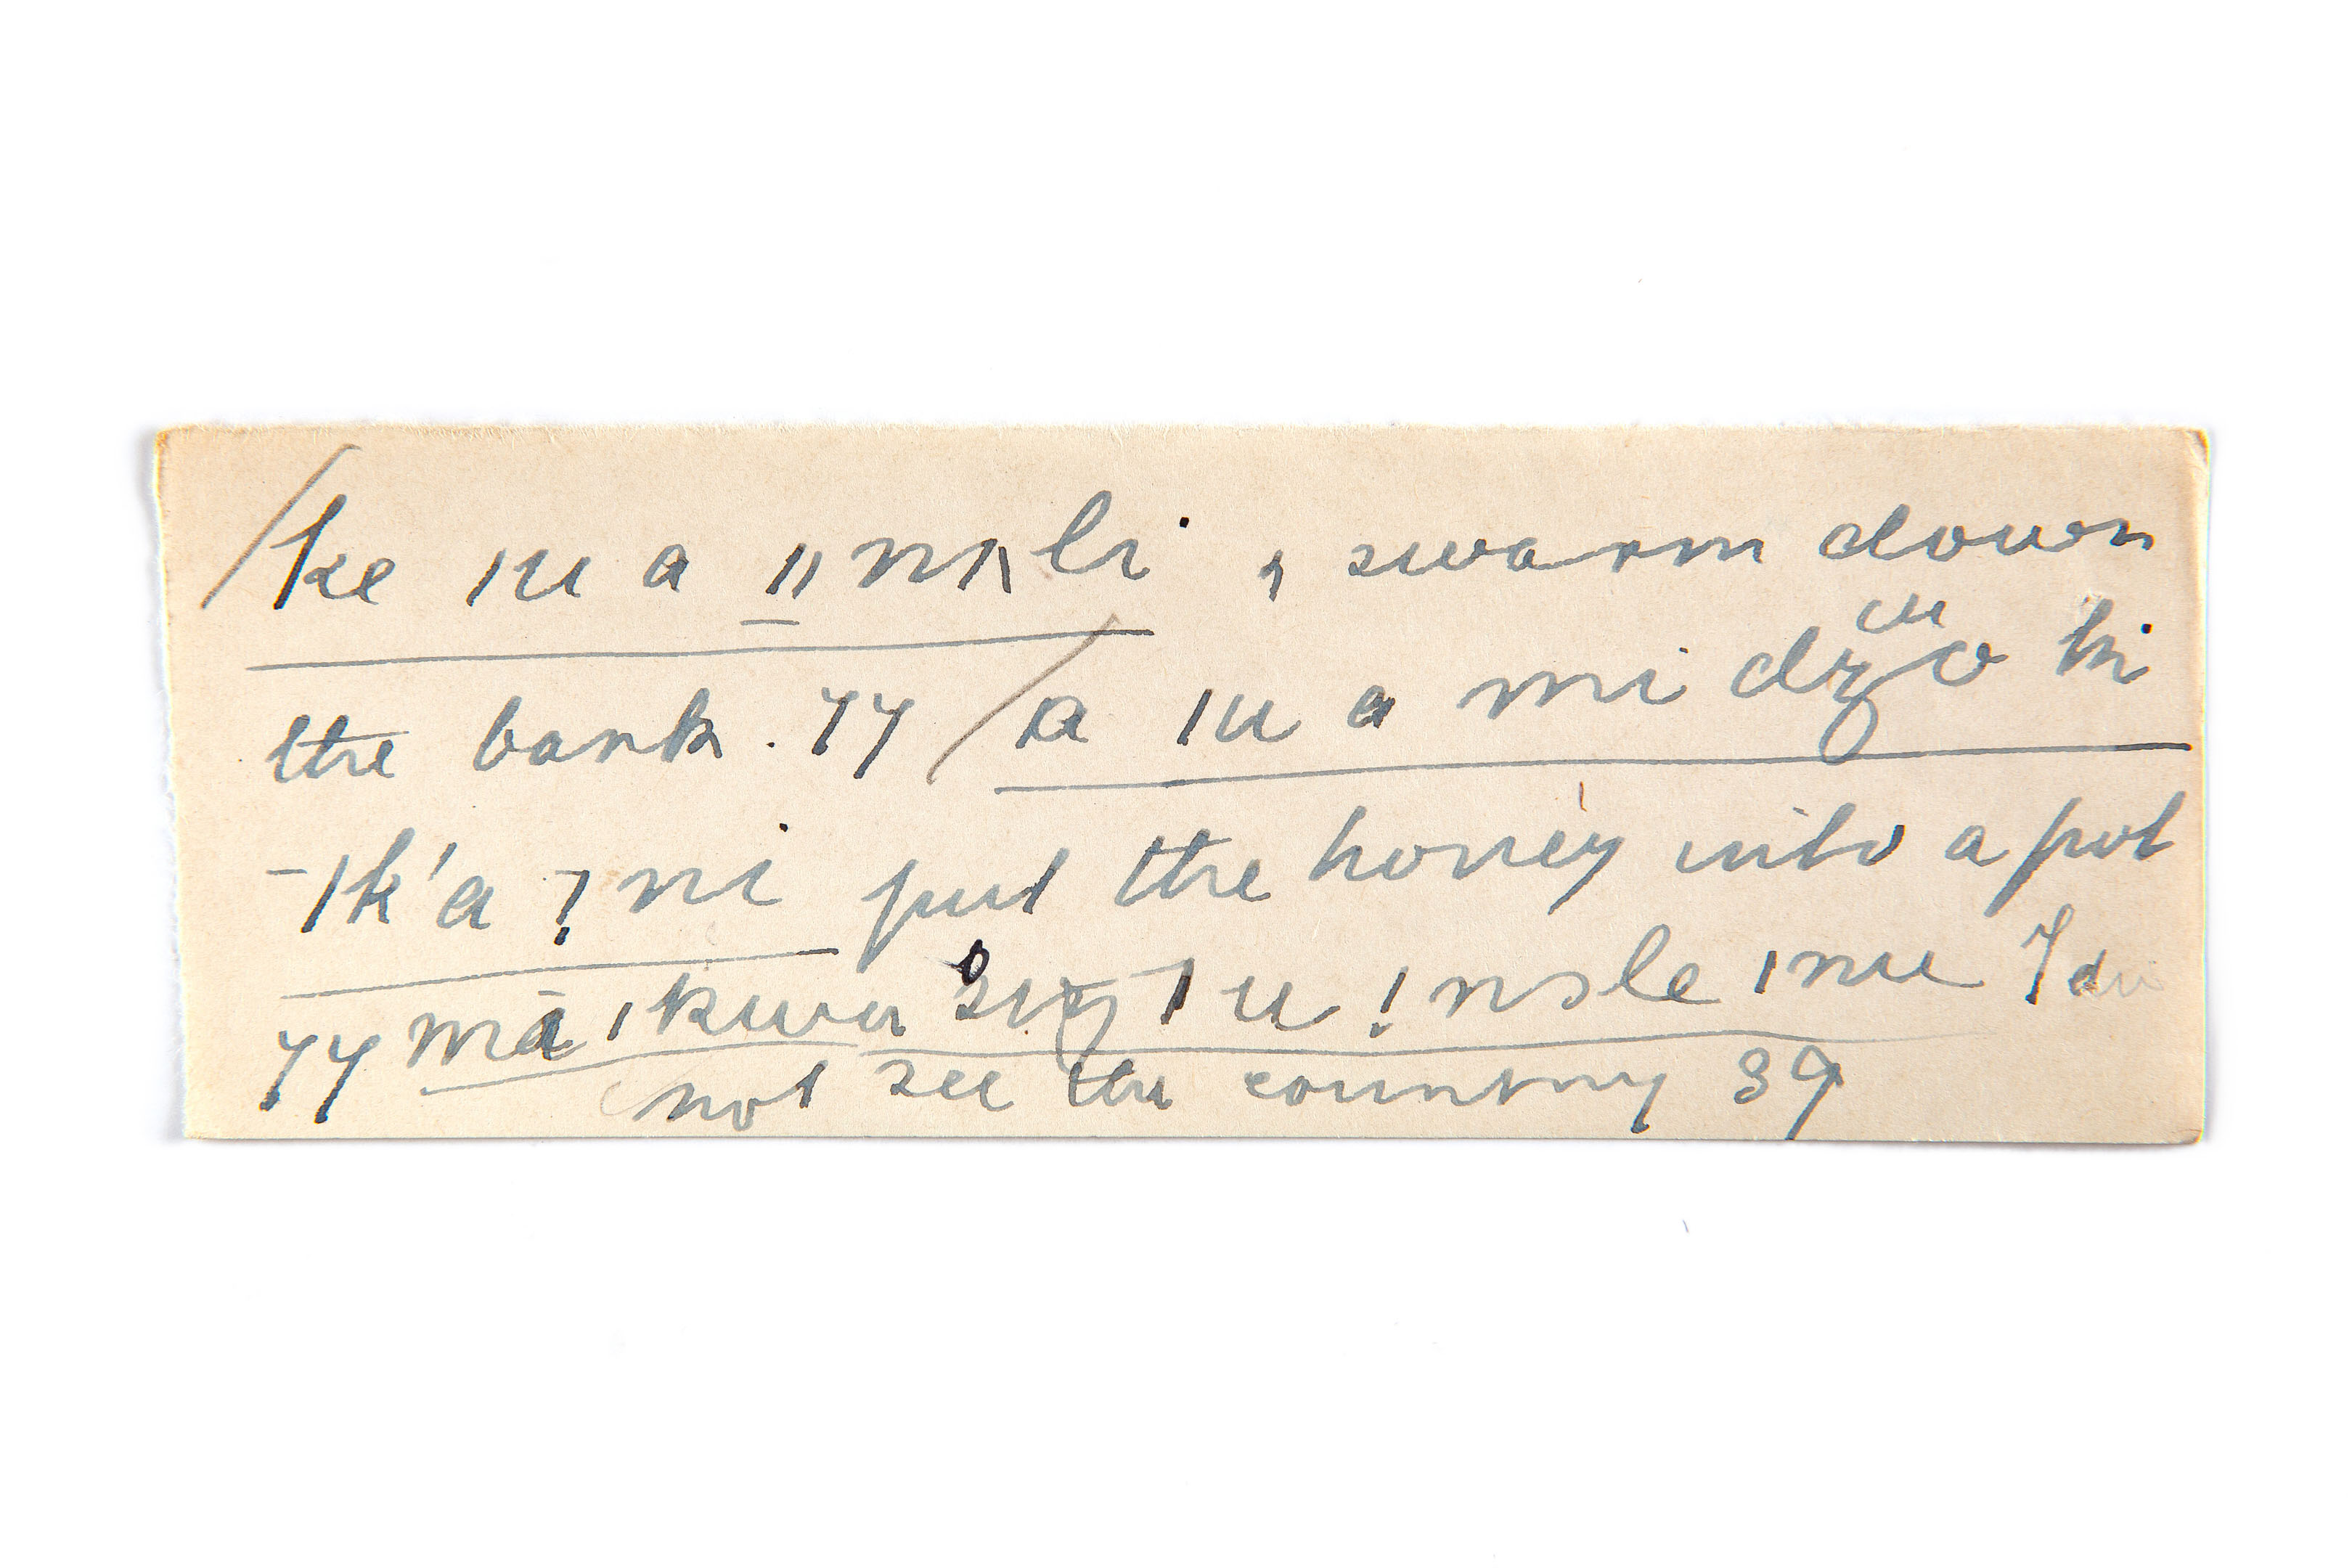 /ke ıu a ǁnʌli , swarm down
the bank. 77 /a ıu a mi dʒo ki
-ık'a !ni put the honey into a pot
77 mā ıkwa ıu !nɔle ınu I do
not see the country 39